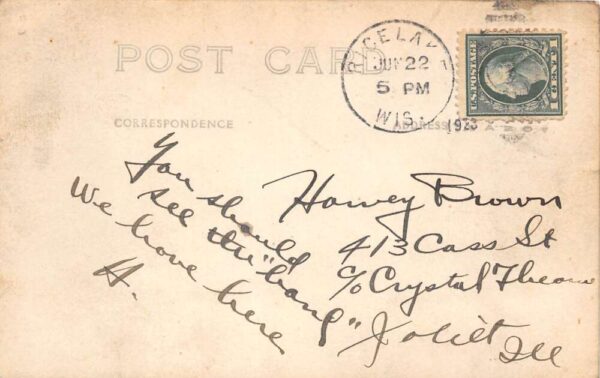 POST CARD
RICE LAKE
JUN 22
5 PM
WIS.
1923
U.S. POSTAGE
1 CENT 1
CORRESPONDENCE
ADDRESS
You should
see the "band"
We have here
H.
Harvey Brown
413 Cass St
c/o Crystal
Joliet
Ill